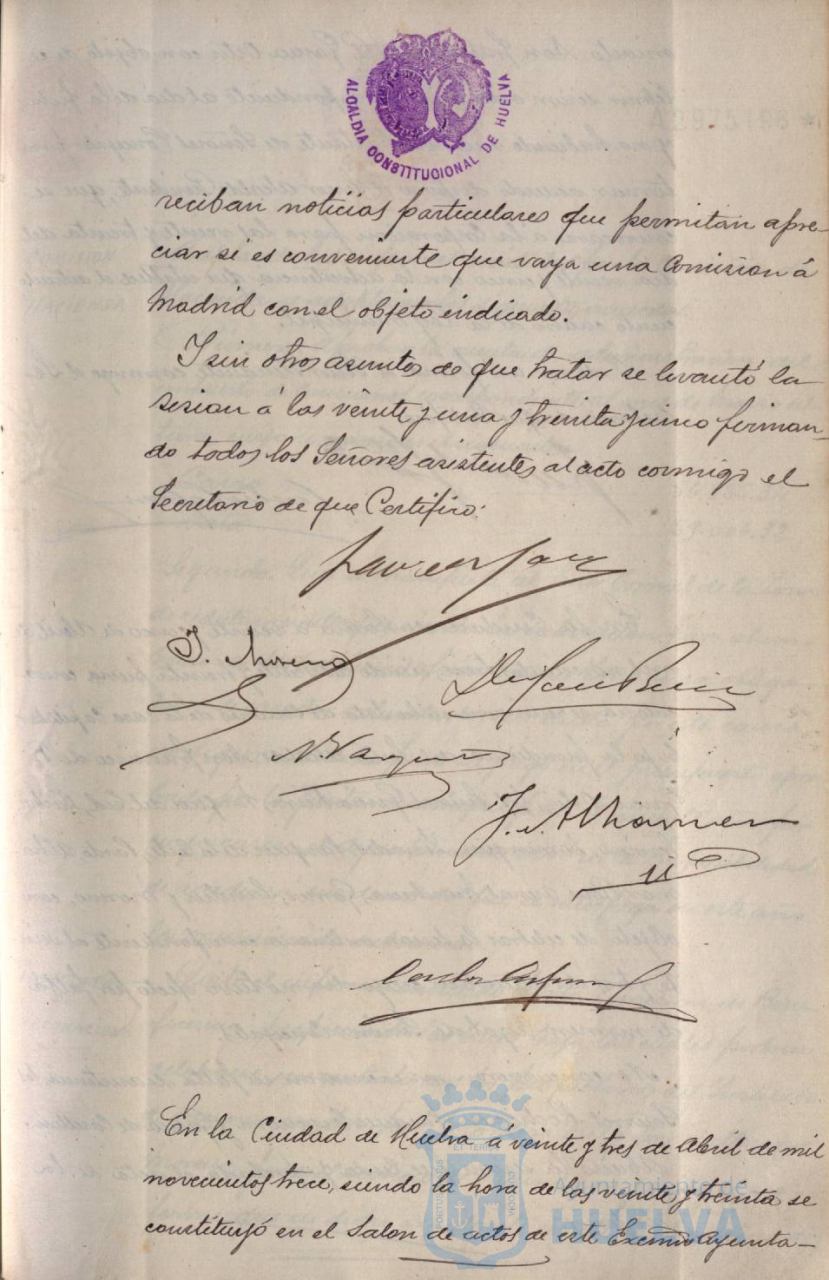 ALCALDIA CONSTITUCIONAL DE HUELVA
reciban noticias particulares que permitan apre-
ciar si es conveniente que vaya una Comision á
Madrid con el objeto indicado.
Y sin otros asuntos de que tratar se levantó la
sesion á las veinte y una y treinta y cinco firman-
do todos los Señores asistentes al acto conmigo el
Secretario de que Certifico.
J. Moreno
En la Ciudad de Huelva á veinte y tres de Abril de mil
novecientos trece, siendo la hora de las veinte y treinta se
constituyó en el Salon de actos de este Excmo Ayunta-
Ayuntamiento de
HUELVA